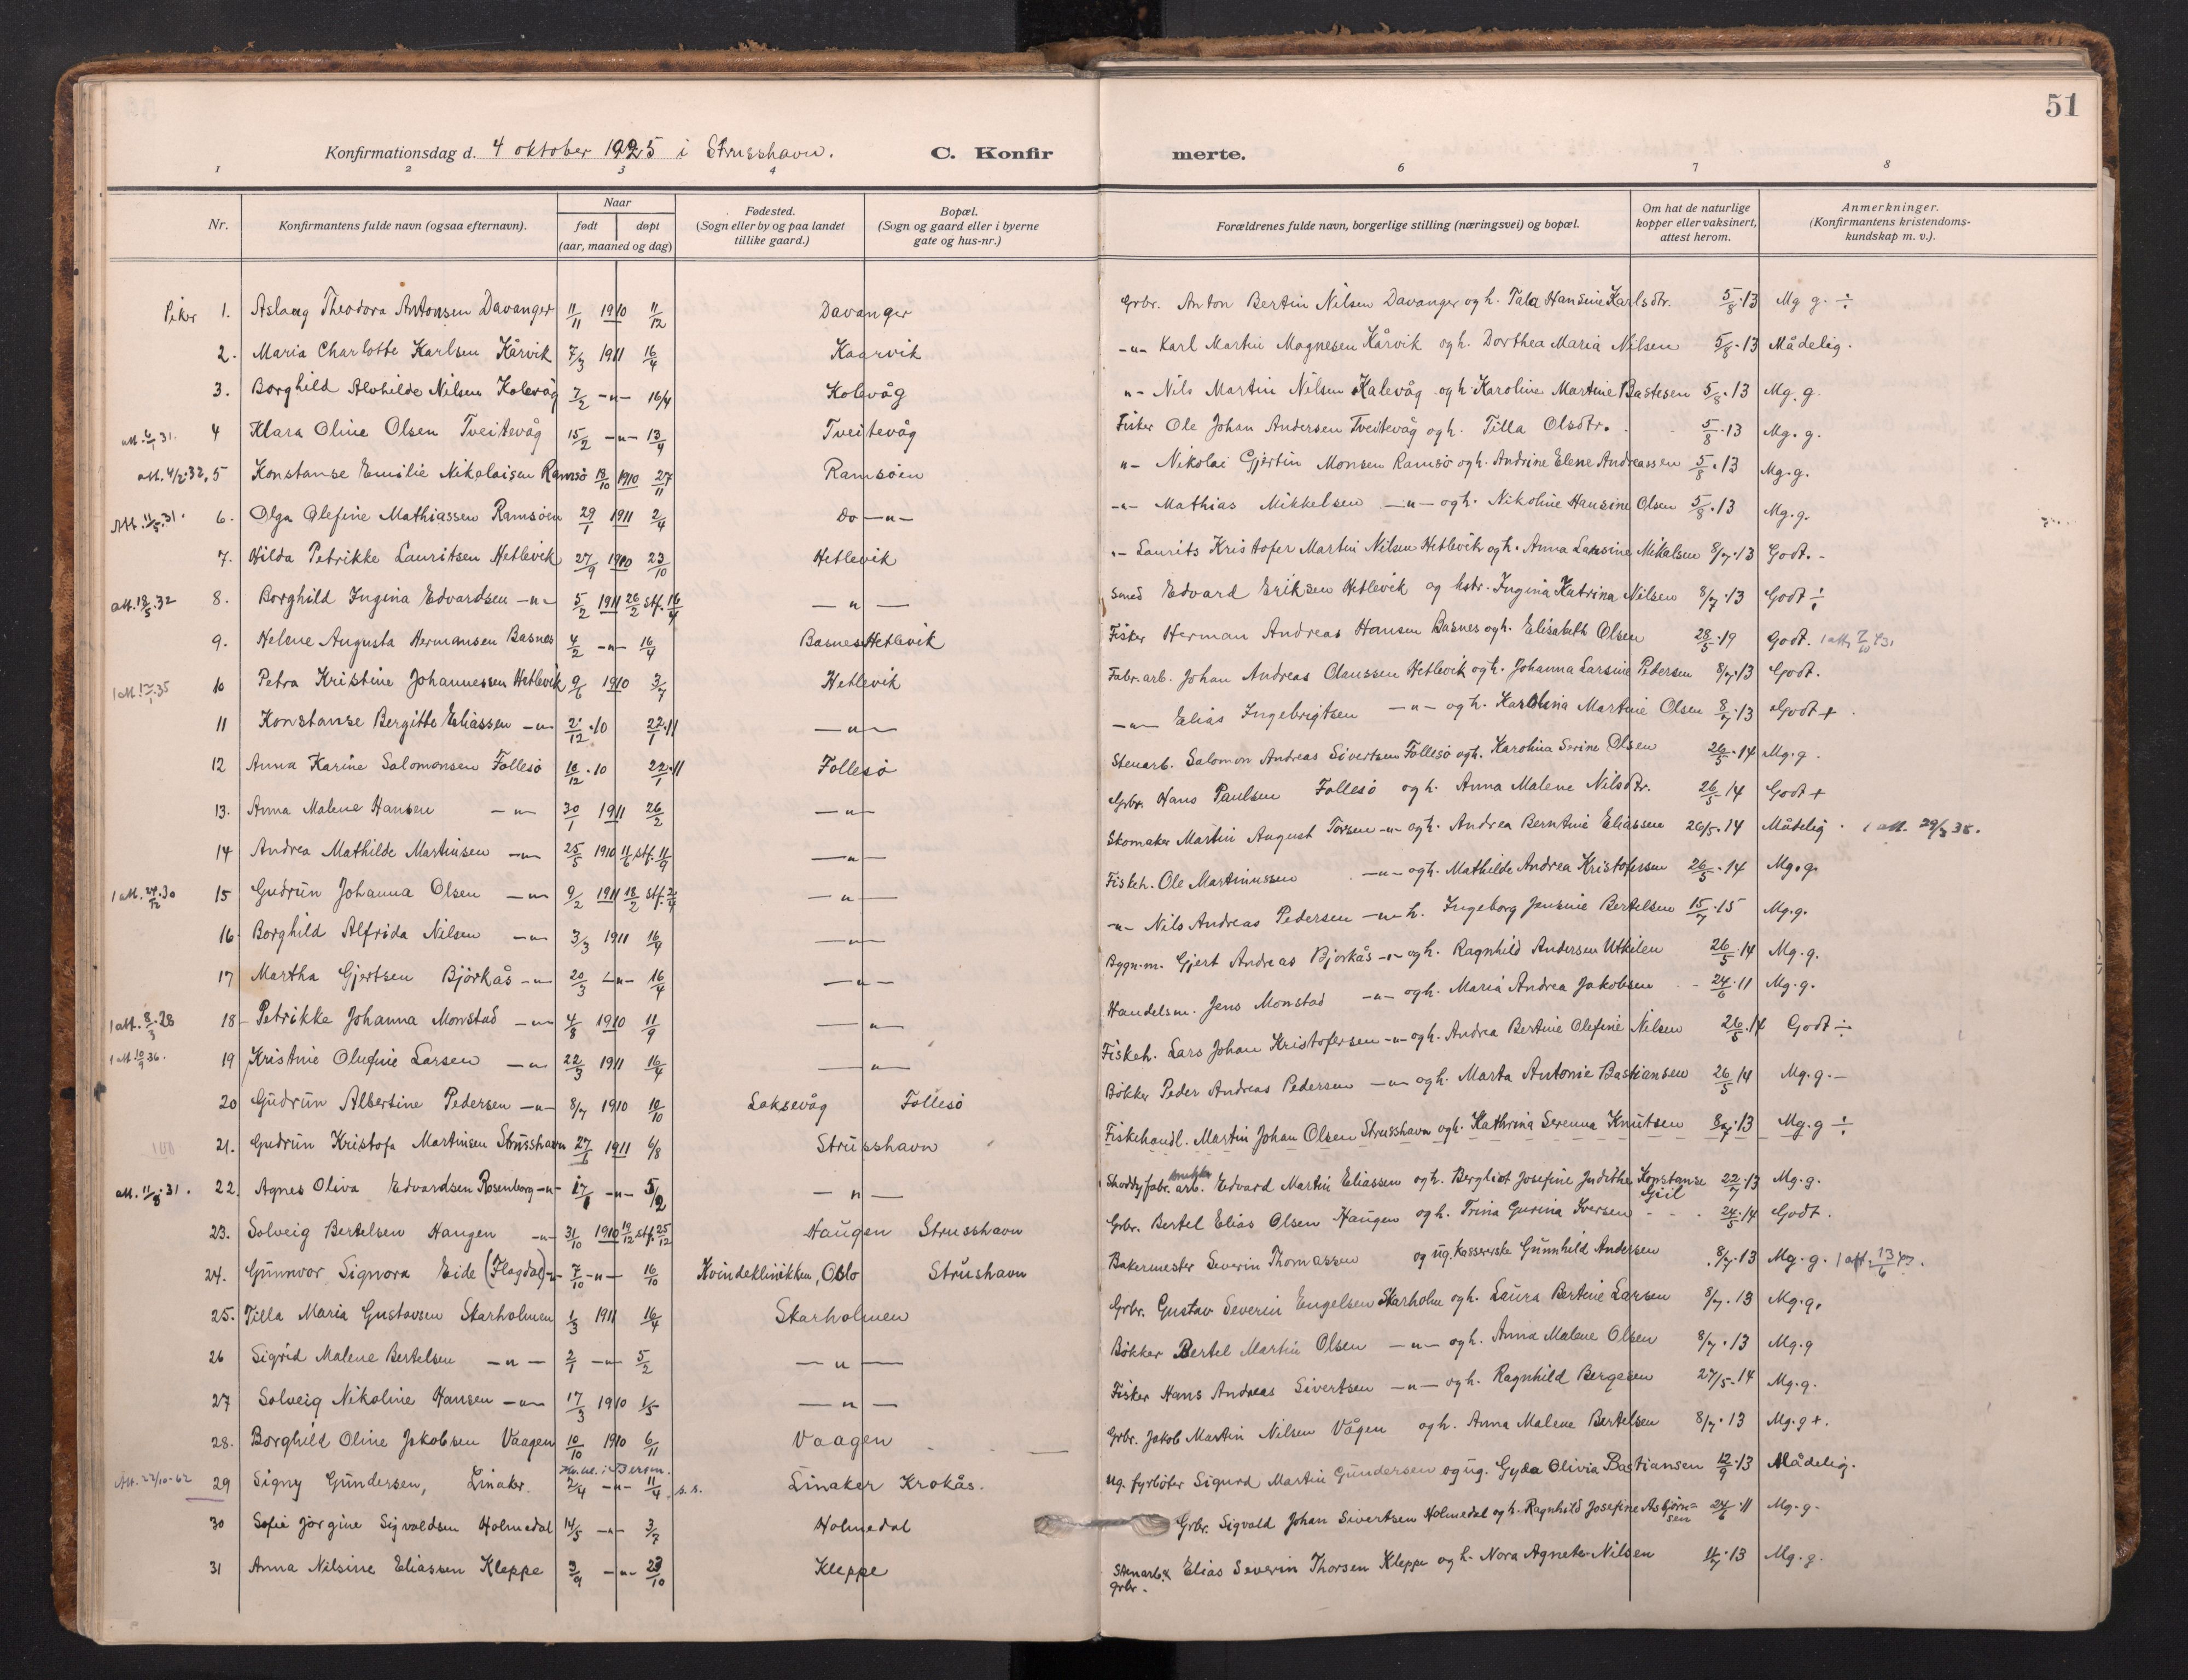 51
Konfirmationsdag d. 4 oktober 1925 i Strusshavn. C. Konfir merte.
1 2 3 4 6 7 8
Nr. Konfirmantens fulde navn (ogsaa efternavn). Naar født døpt (aar, maaned og dag) Fødested. (Sogn eller by og paa landet tillike gaard.) Bopæl. (Sogn og gaard eller i byerne gate og hus-nr.) Forældrenes fulde navn, borgerlige stilling (næringsvei) og bopæl. Om hat de naturlige kopper eller vaksinert, attest herom. Anmerkninger. (Konfirmantens kristendomskundskap m. v.).
Piker 1. Aslaug Theodora Antonsen Davanger 11/11 1910 11/12 Davanger Grbr. Anton Bertin Nilsen Davanger og h. Tala Hansine Karlsdtr. 5/8·13 Mg g. ÷
2. Maria Charlotte Karlsen Kårvik 7/3 1911 16/4 Kaarvik -"- Karl Martin Magnesen Kårvik og h. Dorthea Maria Nilsen 5/8·13 Mådelig.
3. Borghild Alvhilde Nilsen Kolevåg 7/2 -"- 16/4 Kolevåg "- Nils Martin Nilsen Kalevåg og h. Karoline Martine Bastesen 5/8·13 Mg. g.
att. 6/1 31. 4 Klara Oline Olsen Tveitevåg 15/2 -"- 13/4 Tveitevåg Fisker Ole Johan Andersen Tveitevåg og h. Tilla Olsdtr. 5/8·13 Mg. g.
att. 4/2·32. 5 Konstanse Emilie Nikolaisen Ramsö 18/10 1910 27/11 Ramsöen "- Nikolai Gjertin Monsen Ramsö og h. Andrine Elene Andreassen 5/8·13 Mg. g.
Att. 11/5·31. 6. Olga Olefine Mathiassen Ramsöen 29/1 1911 2/4 Do -"- -"- Mathias Mikkelsen -"- og h. Nikoline Hansine Olsen 5/8·13 Mg. g.
7. Hilda Petrikke Lauritsen Hetlevik 27/9 1910 23/10 Hetlevik "- Laurits Kristofer Martin Nilsen Hetlevik og h. Anna Larsine Mikalsen 8/7·13 Godt. -
att. 18/5·32 8. Borghild Ingina Edvardsen -"- 5/2 1911 26/2 stf. 16/4 -"- Smed Edvard Eriksen Hetlevik og hstr. Ingina Katrina Nilsen 8/7·13 Godt ÷
9. Helene Augusta Hermansen Basnes 4/2 -"- 16/4 Basnes Hetlevik Fisker Herman Andreas Hansen Basnes og h. Elisabeth Olsen 28/5·19 Godt.
10 Petra Kristine Johannessen Hetlevik 9/6 1910 3/7 Hetlevik Fabr.arb. Johan Andreas Claussen Hetlevik og h. Johanna Larsine Pedersen 8/7·13 Godt.
11 Konstanse Bergitte Eliassen -"- 2/12·10 22/1·11 -"- -"- Elias Ingebrigtsen -"- og h. Karolina Martine Olsen 8/7·13 Godt +
12 Anna Karine Salomonsen Follesö 10/12·10 22/1·11 Follesö Stenarb. Salomon Andreas Sivertsen Follesö og h. Karolina Serine Olsen 26/5·14 Mg. g.
13. Anna Malene Hansen -"- 30/1 1911 26/2 -"- Grbr. Hans Paulsen Follesö og h. Anna Malene Nilsdtr. 26/5 14 Godt +
14 Andrea Mathilde Martinsen -"- 25/5 1910 11/6 stf. 11/9 -"- Skomaker Martin August Torsen -"- og h. Andrea Berntine Eliassen 26/5·14 Mådelig. 1 att. 29/3 38.
1 att. 24/12·30 15 Gudrun Johanna Olsen -"- 9/2 1911 18/2 stf. 2/4 -"- Fiskeh. Ole Martinussen -"- og h. Mathilde Andrea Kristofersen 26/5·14 Mg. g.
16 Borghild Alfrida Nilsen -"- 3/3 1911 16/4 -"- -"- Nils Andreas Pedersen -"- h. Ingeborg Jensine Bertelsen 15/7·15 Mg. g.
17 Martha Gjertsen Björkås -"- 20/3 -"- 16/4 -"- Bygn.m. Gjert Andreas Björkås -"- og h. Ragnhild Andersen Utkilen 26/5·14 Mg. g.
1 att. 8/3·28 18 Petrikke Johanna Monstad -"- 4/8 1910 11/9 -"- Handelsm. Jens Monstad -"- og h. Maria Andrea Jakobsen 24/6·11 Mg. g.
1 att 10/9 36. 19 Kristine Olufine Larsen -"- 22/3 1911 16/4 -"- Fiskeh. Lars Johan Kristofersen -"- og h. Andrea Bertine Olefine Nilsen 26/5·14 Godt ÷
20 Gudrun Albertine Pedersen -"- 8/7 1910 10/10 Laksevåg Follesö Bökker Peder Andreas Pedersen -"- og h. Marta Antonie Bastiansen 26/5 14 Mg. g. -
21. Gudrun Kristofa Martinsen Strusshavn 27/6 1911 6/8 Strusshavn Fiskehandl. Martin Johan Olsen Strusshavn og h. Kathrina Serenna Knutsen 8/7·13 Mg. g ÷
att. 11/8·31. 22. Agnes Oliva Edvardsen Rosenborg -"- 17/1 -"- 5/2 -"- Shoddyfabr. arb. Edvard Martin Eliassen og h. Bergliot Josefine Judithe Konstanse Giil 22/7·13 Mg. g.
23. Solveig Bertelsen Haugen -"- 31/10 1910 19/12 stf. 25/12 Haugen Strusshavn Grbr. Bertel Elias Olsen Haugen og h. Trina Gurina Iversen 24/5·14 Godt.
24. Gunnvor Signora Eide (Flagdal) -"- 7/10 -"- 16/10 Kvindeklinikken, Oslo Strushavn Bakermester Severin Thomassen og ug. kassererske Gunnhild Andersen 8/7·13 Mg. g. 1 att. 13/6
25. Tilla Maria Gustavsen Skarholmen 1/3 1911 16/4 Skarholmen Grbr. Gustav Severin Engelsen Skarholm og h. Laura Bertine Larsen 8/7·13 Mg. g.
26 Sigrid Malene Bertelsen -"- 2/1 -"- 5/2 -"- Bökker Bertel Martin Olsen -"- og h. Anna Malene Olsen 8/7·13 Mg. g
27 Solveig Nikoline Hansen -"- 17/3 1910 1/5 -"- Fisker Hans Andreas Sivertsen -"- og h. Ragnhild Bergesen 27/5·14 Mg. g.
28. Borghild Oline Jakobsen Vaagen 10/10 1910 6/11 Vaagen Grbr. Jakob Martin Nilsen Vågen og h. Anna Malene Bertelsen 8/7·13 Mg. g +.
Att. 22/10-62 29 Signy Gundersen, Linaker. 2/4 -"- 11/4 s.s. Linaker Krokås. ug. fyrböter Sigurd Martin Gundersen og ug. Gyda Olivia Bastiansen 12/9·13 Mådelig.
30 Sofie Jörgine Sigvaldsen Holmedal 14/5 -"- 3/7 Holmedal Grbr. Sigvald Johan Sivertsen Holmedal og h. Ragnhild Josefine Asbjörnsen 24/6 11 Mg. g.
31 Anna Nilsine Eliassen Kleppe 3/9 -"- 23/10 Kleppe Stenarb. & grbr. Elias Severin Thorsen Kleppe og h. Nora Agnete Nilsen 11/7·13 Mg. g.